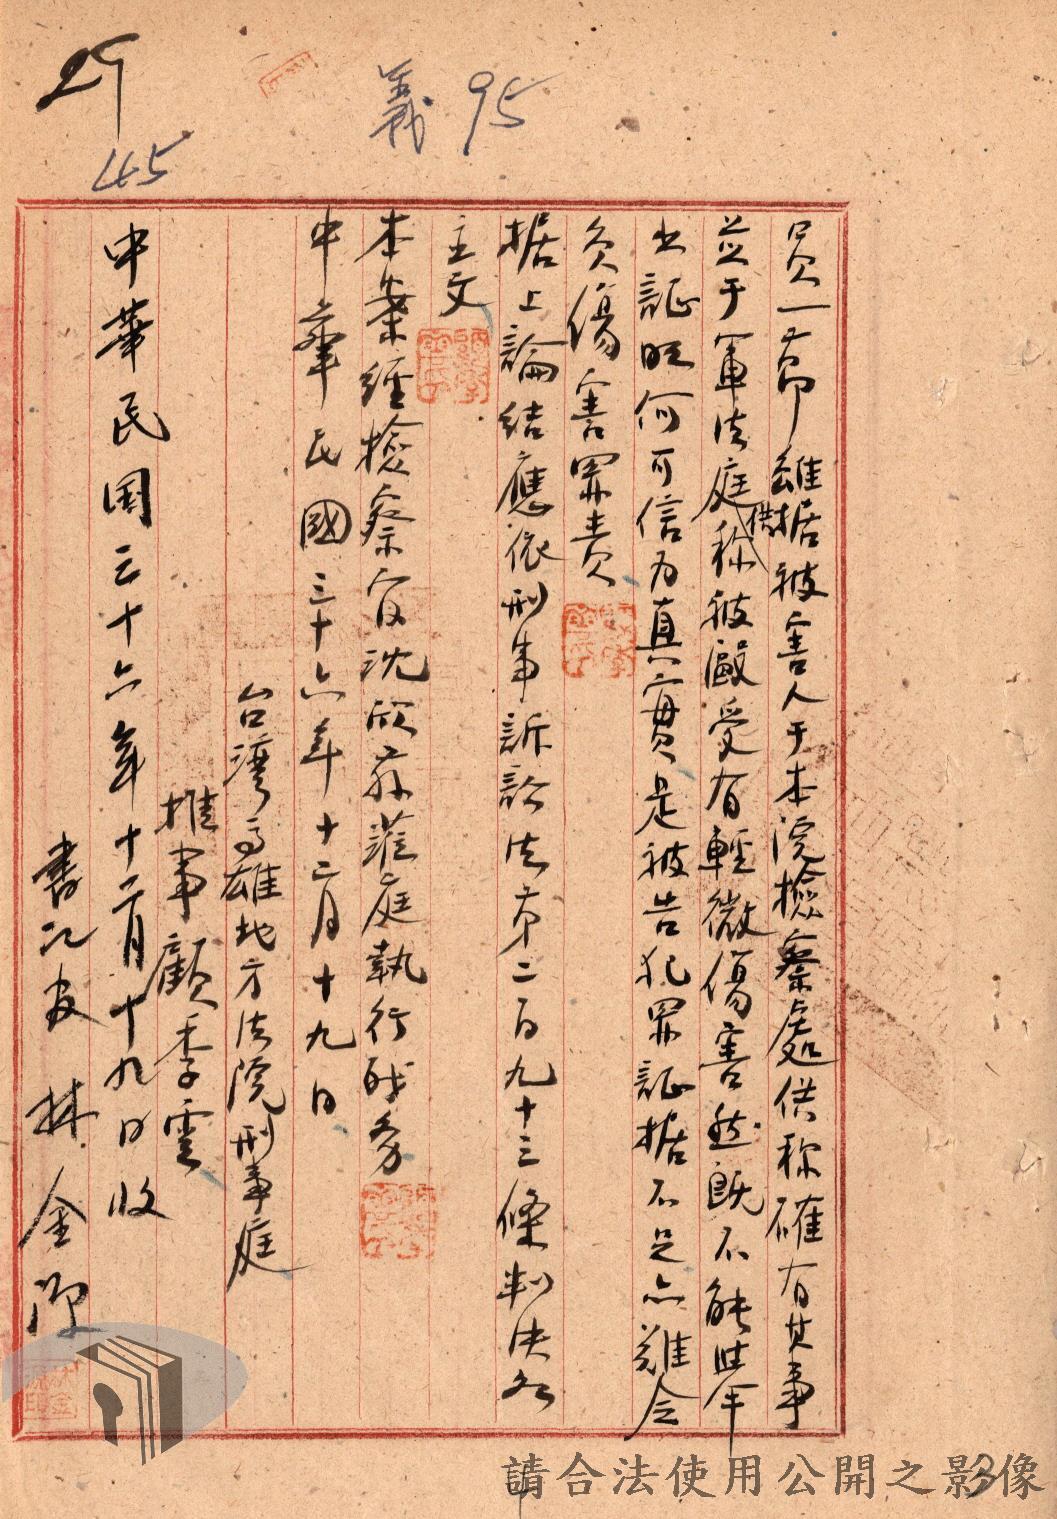 29
45
義 95
員一節雖据被害人于本院檢察處供称確有其事
並于軍法庭供称被毆受有輕微傷害然既不能举
出証明何可信为真實是被告犯罪証据不足亦难令
負傷害罪責
据上論結應依刑事訴訟法第二百九十三條判決如
主文
本案經檢察官沈欣蒞庭執行職务
中華民國三十六年十二月十九日
台灣高雄地方法院刑事庭
推事顧季雲
中華民国三十六年十二月十九日收
書记官 林金源
請合法使用公開之影像
3